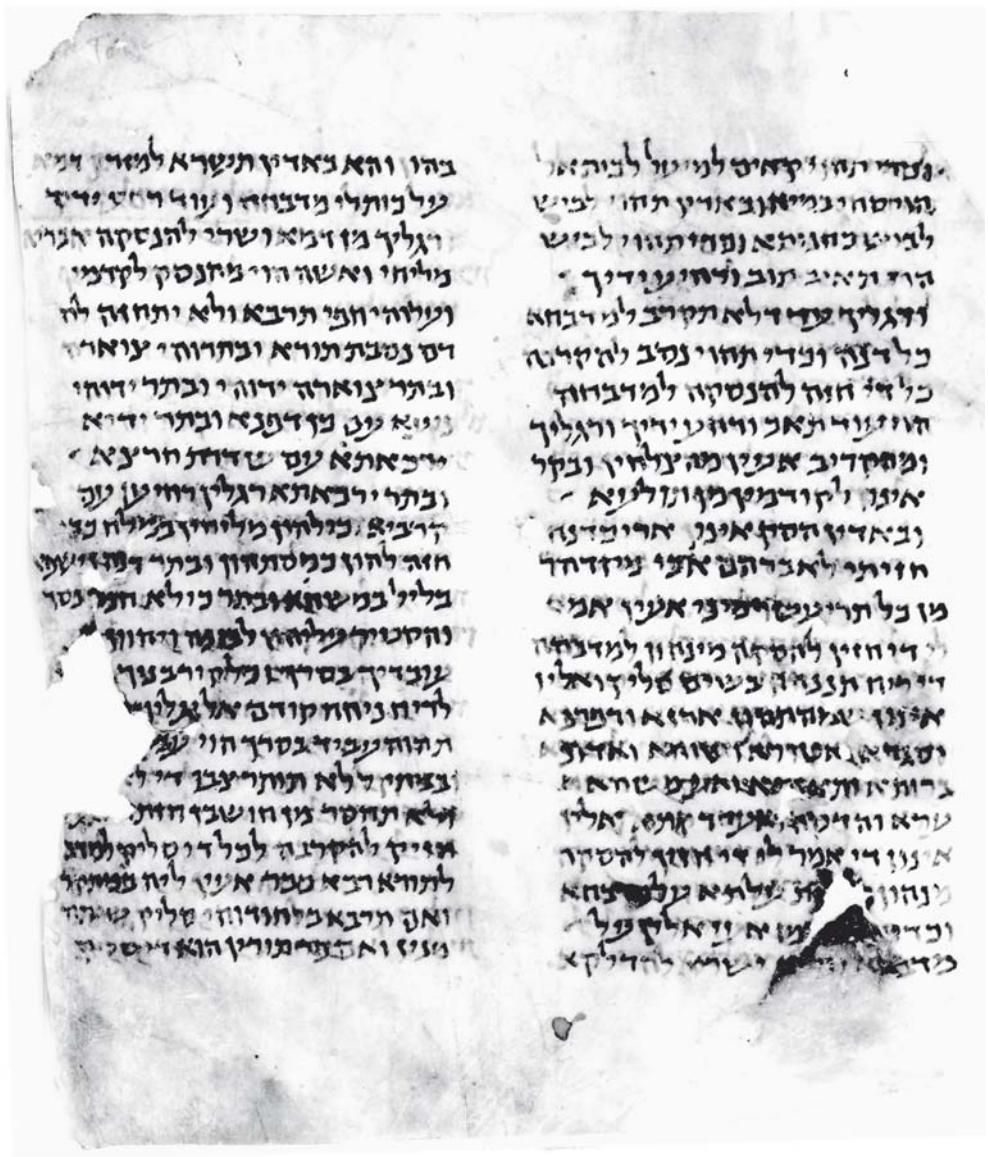 וכדי תהוי קאים למיעל לבית אל
הוי סחי במיא ובאדין תהוי לביש
לבוש כהנותא וכדי תהוי לביש
הוי תאיב תוב ורחיע ידיך
ורגליך עד דלא תקרב למדבחא
כל דנה וכדי תהוי נסב להקרבה
כל די חזה להנסקה למדבחה
הוי עוד תאב ורחע ידיך ורגליך
ומהקריב אעין מהצלחין ובקר
אינון לקודמין מן תולעא
ובאדין הסק אינון ארי כדנה
חזיתי לאברהם אבי מיזדהר
מן כל תריעשר מיני אעין אמר
לי די חזין להסקה מינהון למדבחה
די ריח תננהון בשים סליק ואלין
אינון שמהתהון ארזא ודפרנא
וסגדא ושוחא ואדונא
ברותא משחא
ערא והדסה ואעי דקתא אלין
אינון די אמר לי די חזין להסקה
מנהון עלתא על
וכדי מן אעי אלין על
ישרא להדלקא
בהון והא באדין תישרא למזרק דמא
על כותלי מדבחה ועוד רחע ידיך
ורגליך מן דמא ושרי להנסקה אבריה
מליחין ראשה הוי מהנסק לקדמין
ועלוהי חפי תרבא ולא יתחזה לה
דם נכסת תורא ובתרוהי צוארה
ובתר צוארה ידוהי ובתר ידוהי
ניעא עם כן דפנא ובתר ידיא
ירכאתא עם שדרת חרצא
ובתר ירכאתא רגלין רחיען עם
קרביא וכולהון מליחין במלח כדי
חזה להון כמסתהון ובתר דנה נישפא
בליל במשחא ובתר כולא חמר נסך
והקטיר עליהון לבונה ויהוון
עובדיך בסרך וכל קורבניך
לריח ניחח קודם אל עליון
תהוה עביד בסרך הוי
לא תותר צבו די לא
ולא תחסר מן חושבן חזות
חזין להקרבה לכל די סליק
לתורא רבא ככר אעין ליה במתקל
ואם תרבא בלחודוהי סליק שיתה
מנין ואם פר תורין הוא די סליק